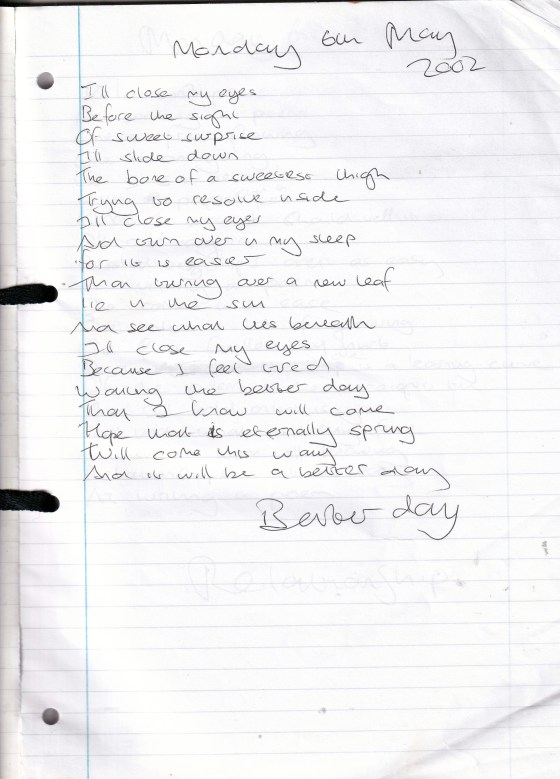 Monday 6th May
2002
I'll close my eyes
Before the sight
Of sweet surprise
I'll slide down
The bone of a sweetest thigh
Trying to resolve inside
I'll close my eyes
And turn over in my sleep
For it is easier
Than turning over a new leaf
lie in the sun
And see what lies beneath
I'll close my eyes
Because I feel tired
Waiting the better day
That I know will come
Hope that is eternally spring
Will come this way
And it will be a better day
Better day
Relationship